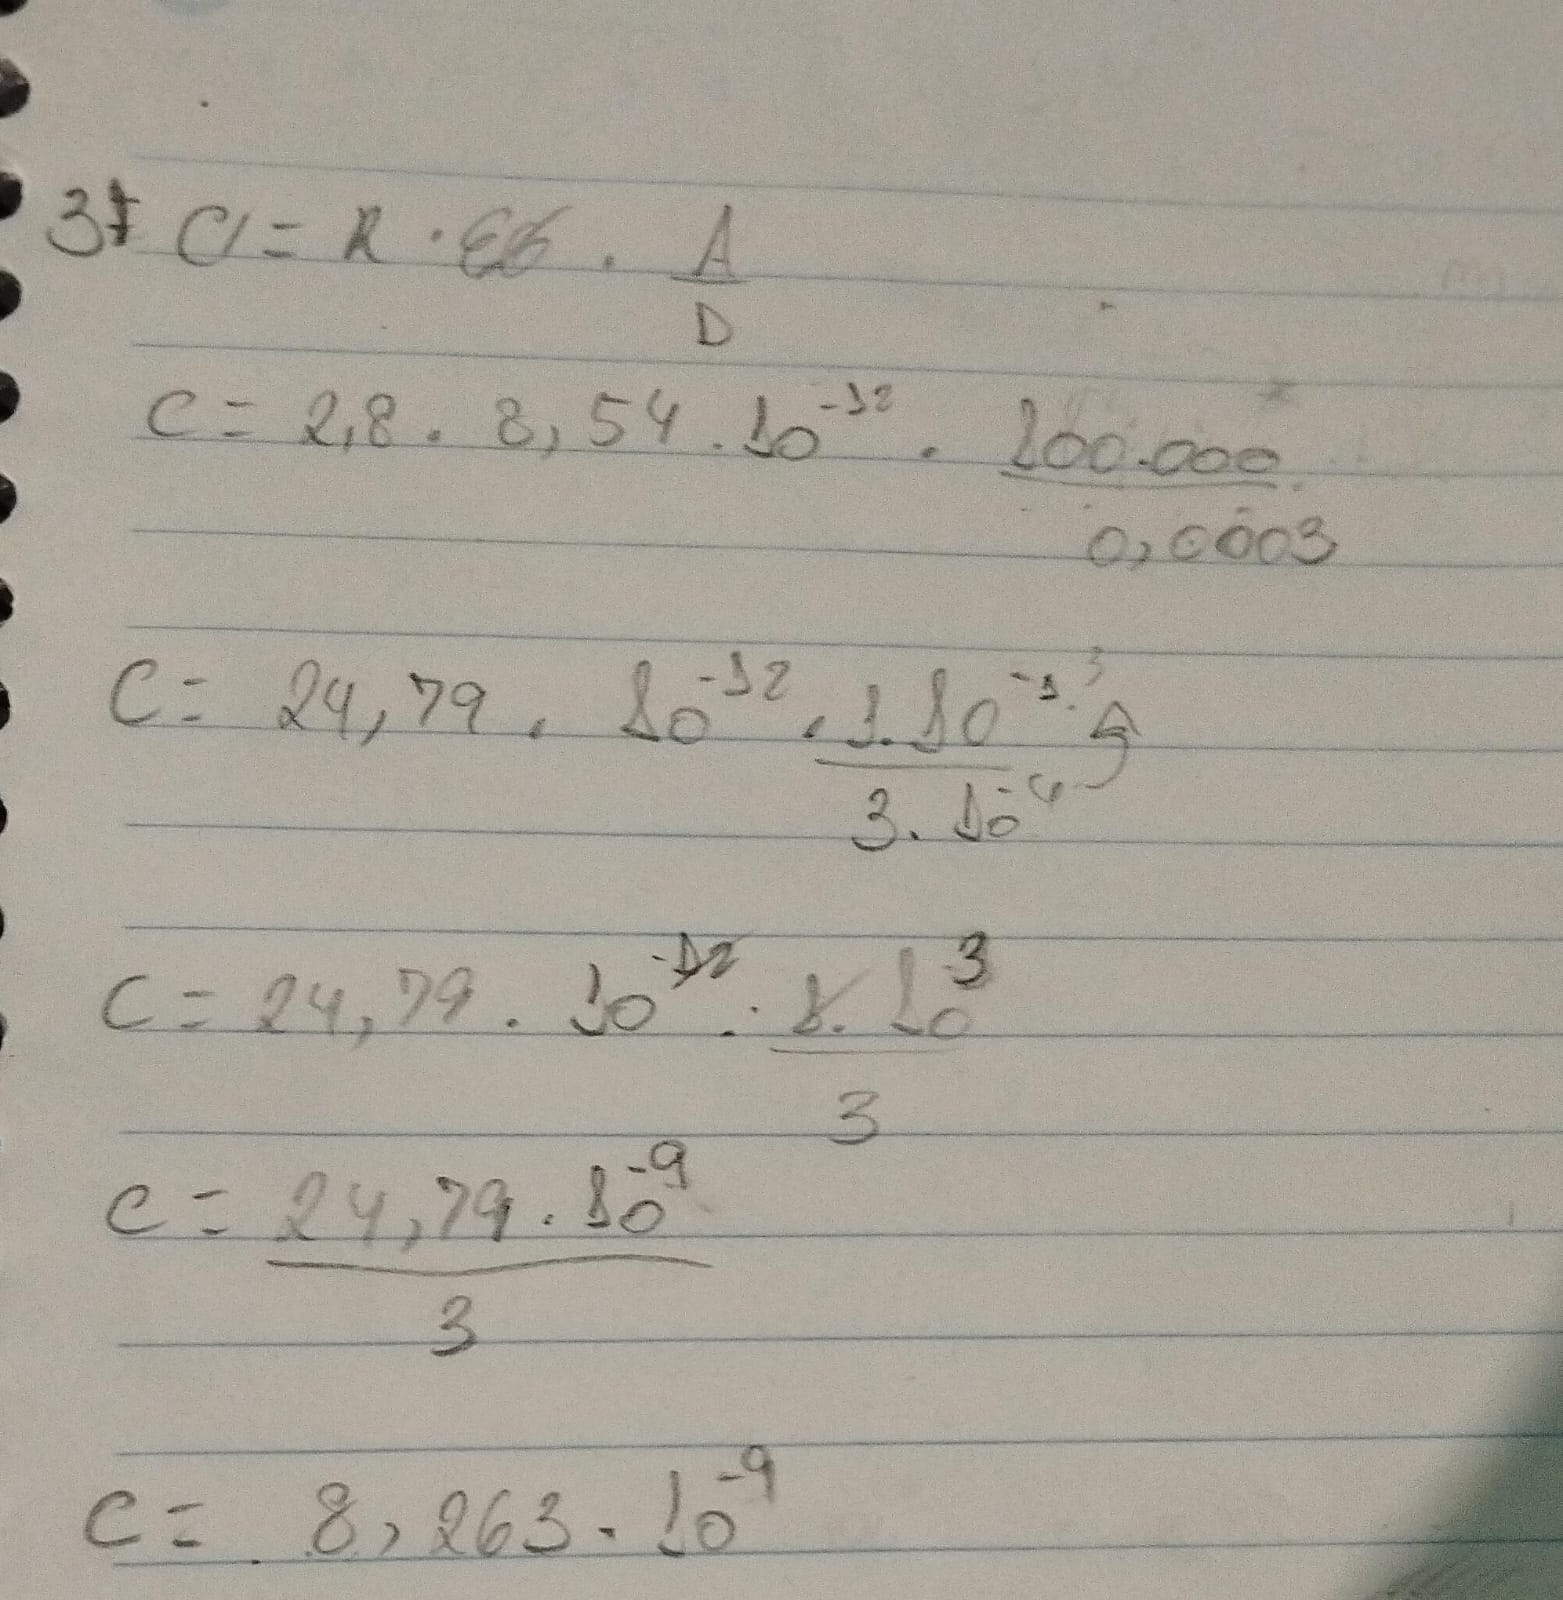 3) C = K . ε0 . A
D
C = 2,8 . 8,54 . 10^-12 . 100.000
0,0003
C = 24,79 . 10^-12 . 1.10^-1 3
3.10^-4
C = 24,79 . 10^-12 . 1.10^3
3
C = 24,79 . 10^-9
3
C = 8,263 . 10^-9